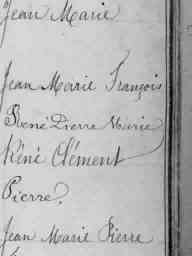 Jean Marie
Jean Marie François
René Pierre Marie
Réné Clément
Pierre.
Jean Marie Pierre